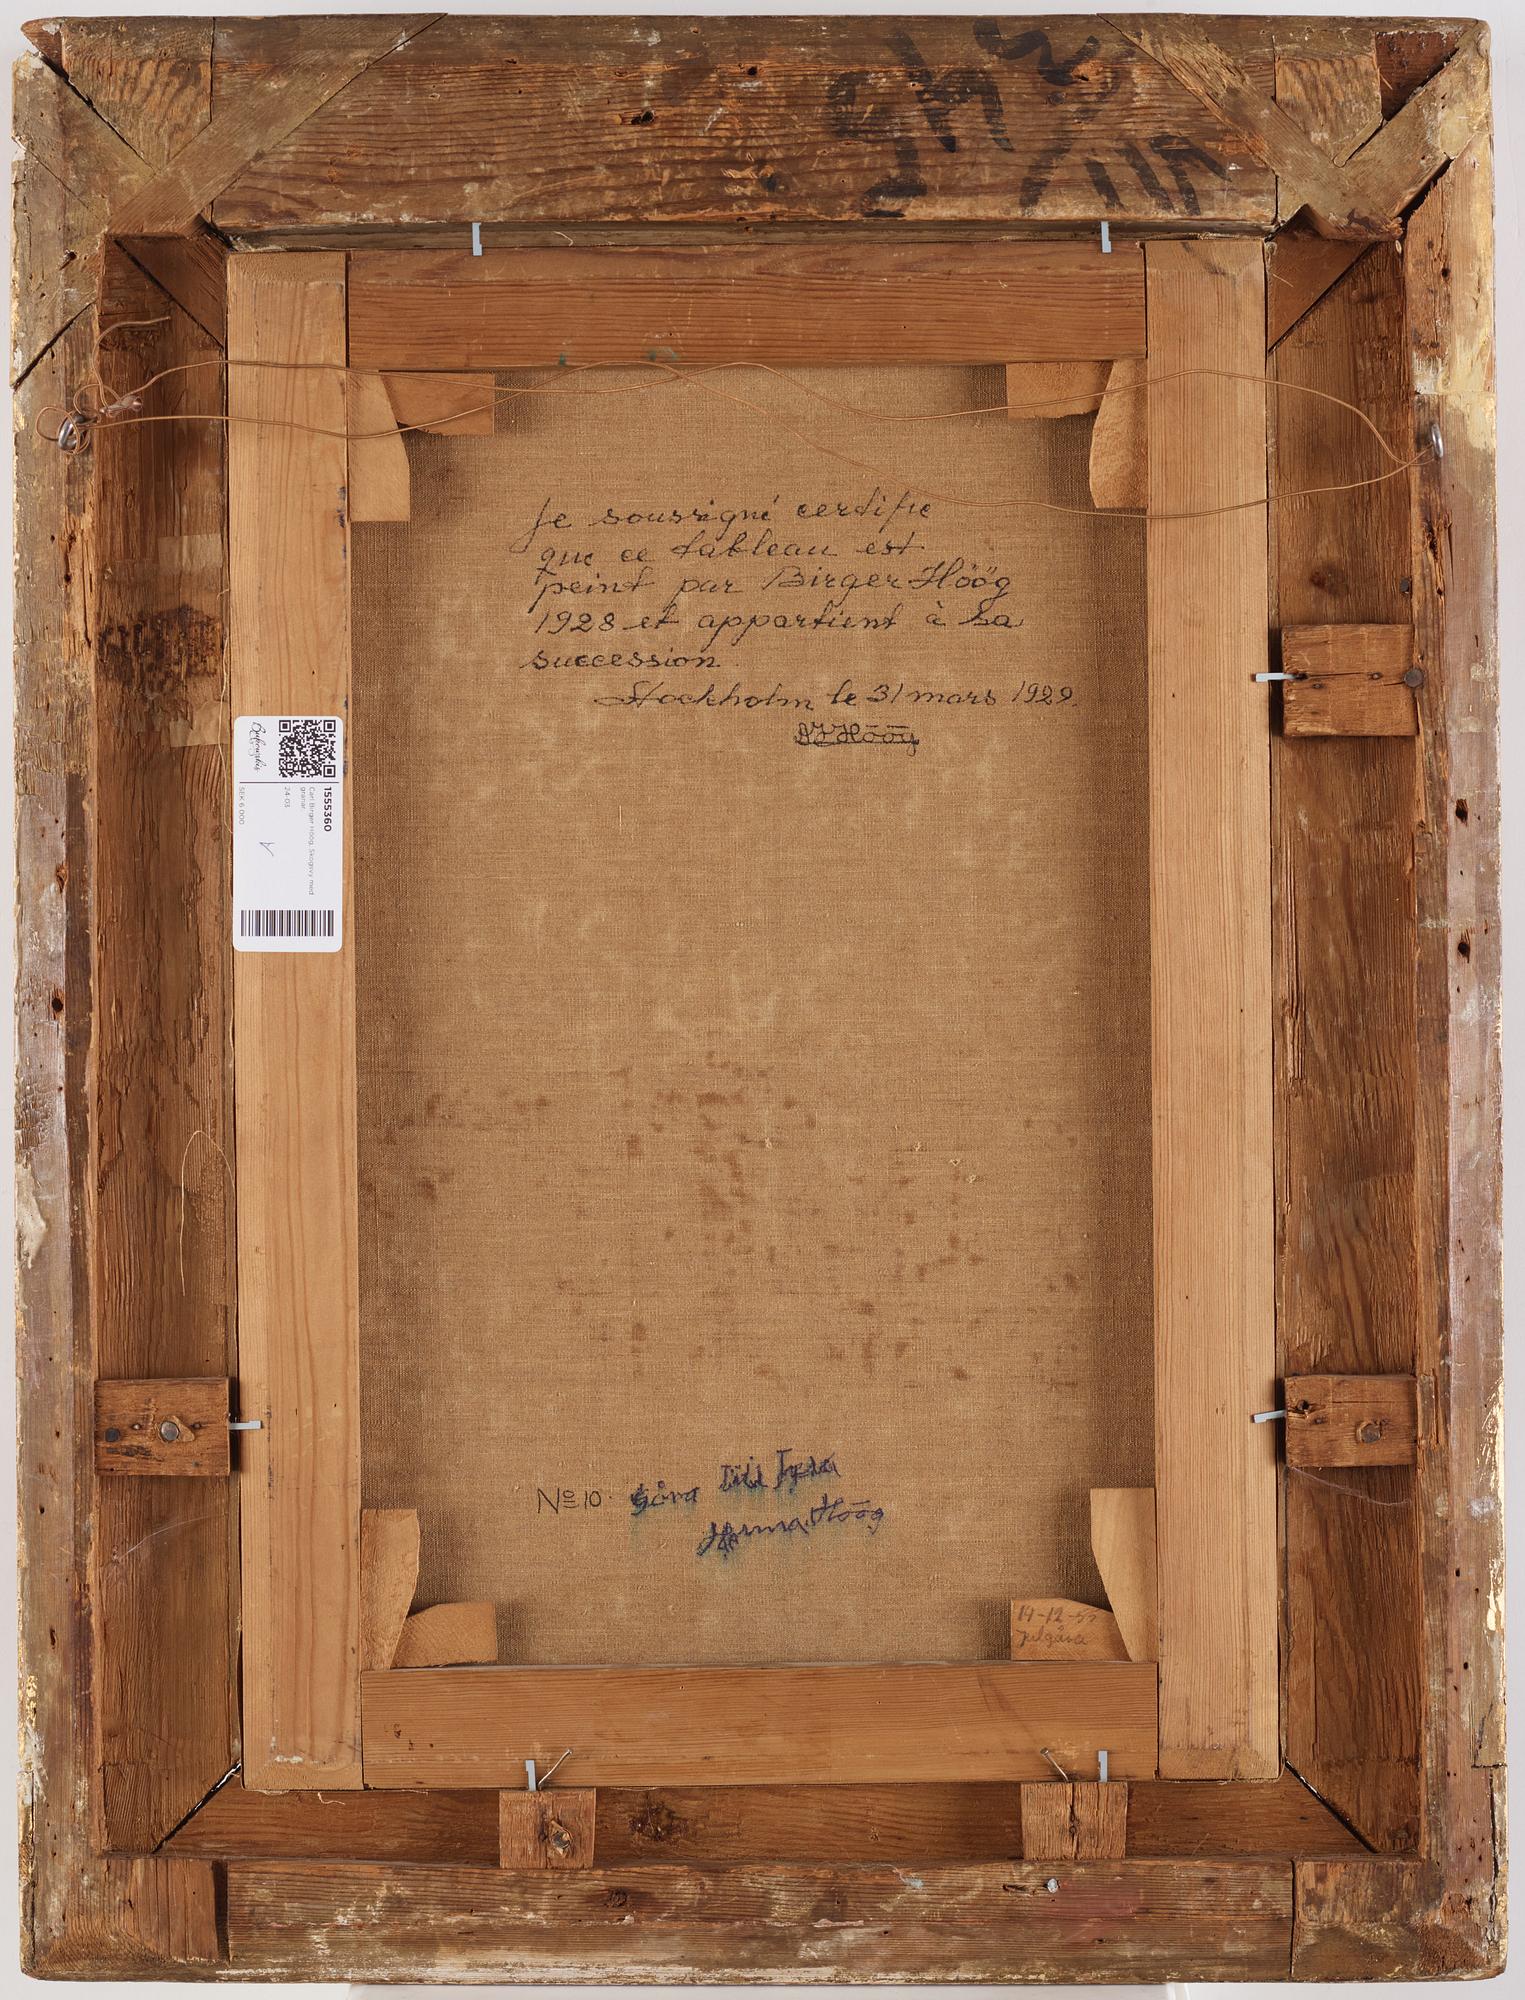 Je soussigné certifie
que ce tableau est
peint par Birger Höög
1928 et appartient à sa
succession.
Stockholm le 31 mars 1929.
Höög
Bukowskis
1555360
Carl Birger Höög, Skogsvy med
granar.
24-03
SEK 6 000
No 10. Gåva till
Hanna Höög
19-12-55
Julgåva